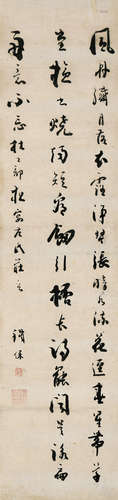 風林纖月落衣露淨琴張暗水流花逕春星帶草
堂檢書燒燭短看劍引桮長詩罷聞吳詠扁
舟意不忘杜工部夜宴左氏莊
鐵保